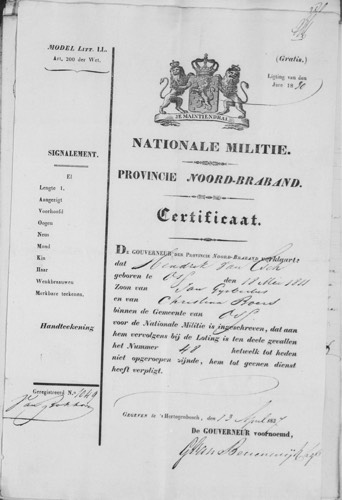 MODEL Litt. LL.
Art. 200 der Wet.
(Gratis.)
Ligting van den
Jare 18 30
JE MAINTIENDRAI
NATIONALE MILITIE.
PROVINCIE NOORD-BRABAND.
Certificaat.
SIGNALEMENT.
El
Lengte 1.
Aangezigt
Voorhoofd
Oogen
Neus
Mond
Kin
Haar
Wenkbraauwen
Merkbare teekenen.
Handteekening
Geregistreerd N.º 1049
DE GOUVERNEUR DER PROVINCIE NOORD-BRABAND verklaart:
dat Hendrik van Esch
geboren te Os den 18 Mei 1811
Zoon van Jan Gysbertus
en van Christina Boers
binnen de Gemeente van Os
voor de Nationale Militie is ingeschreven, dat aan
hem vervolgens bij de Loting is ten deele gevallen
het Nummer 48 hetwelk tot heden
niet opgeroepen zijnde, hem tot geenen dienst
heeft verpligt.
GEGEVEN in 's Hertogenbosch, den 13 April 1837
De GOUVERNEUR voornoemd,